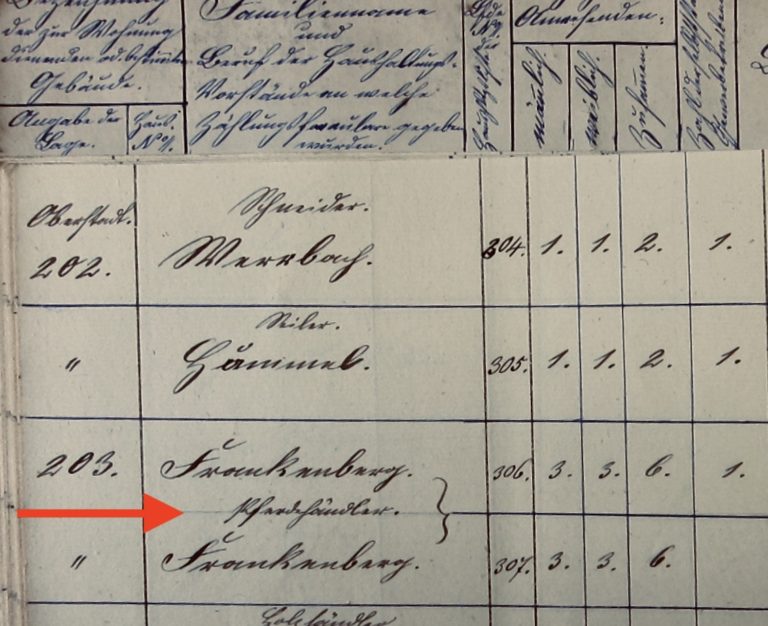 Bezeichnung
der zur Wohnung
dienenden od. bestimmten
Gebäude.
Angabe der
Lage.
Haus.
No.
Familienname
und
Beruf der Haushaltungs-
Vorstände an welche
Zählungsformulare gegeben
wurden.
Anwesenden:
männlich.
weiblich.
Zusamen.
Oberstadt.
202.
Schneider.
Werrbach.
304. 1. 1. 2. 1.
"
Seiler.
Hämmel.
305. 1. 1. 2. 1.
203.
Frankenberg.
306. 3. 3. 6. 1.
Pferdehändler.
"
Frankenberg.
307. 3. 3. 6.
Holzhändler